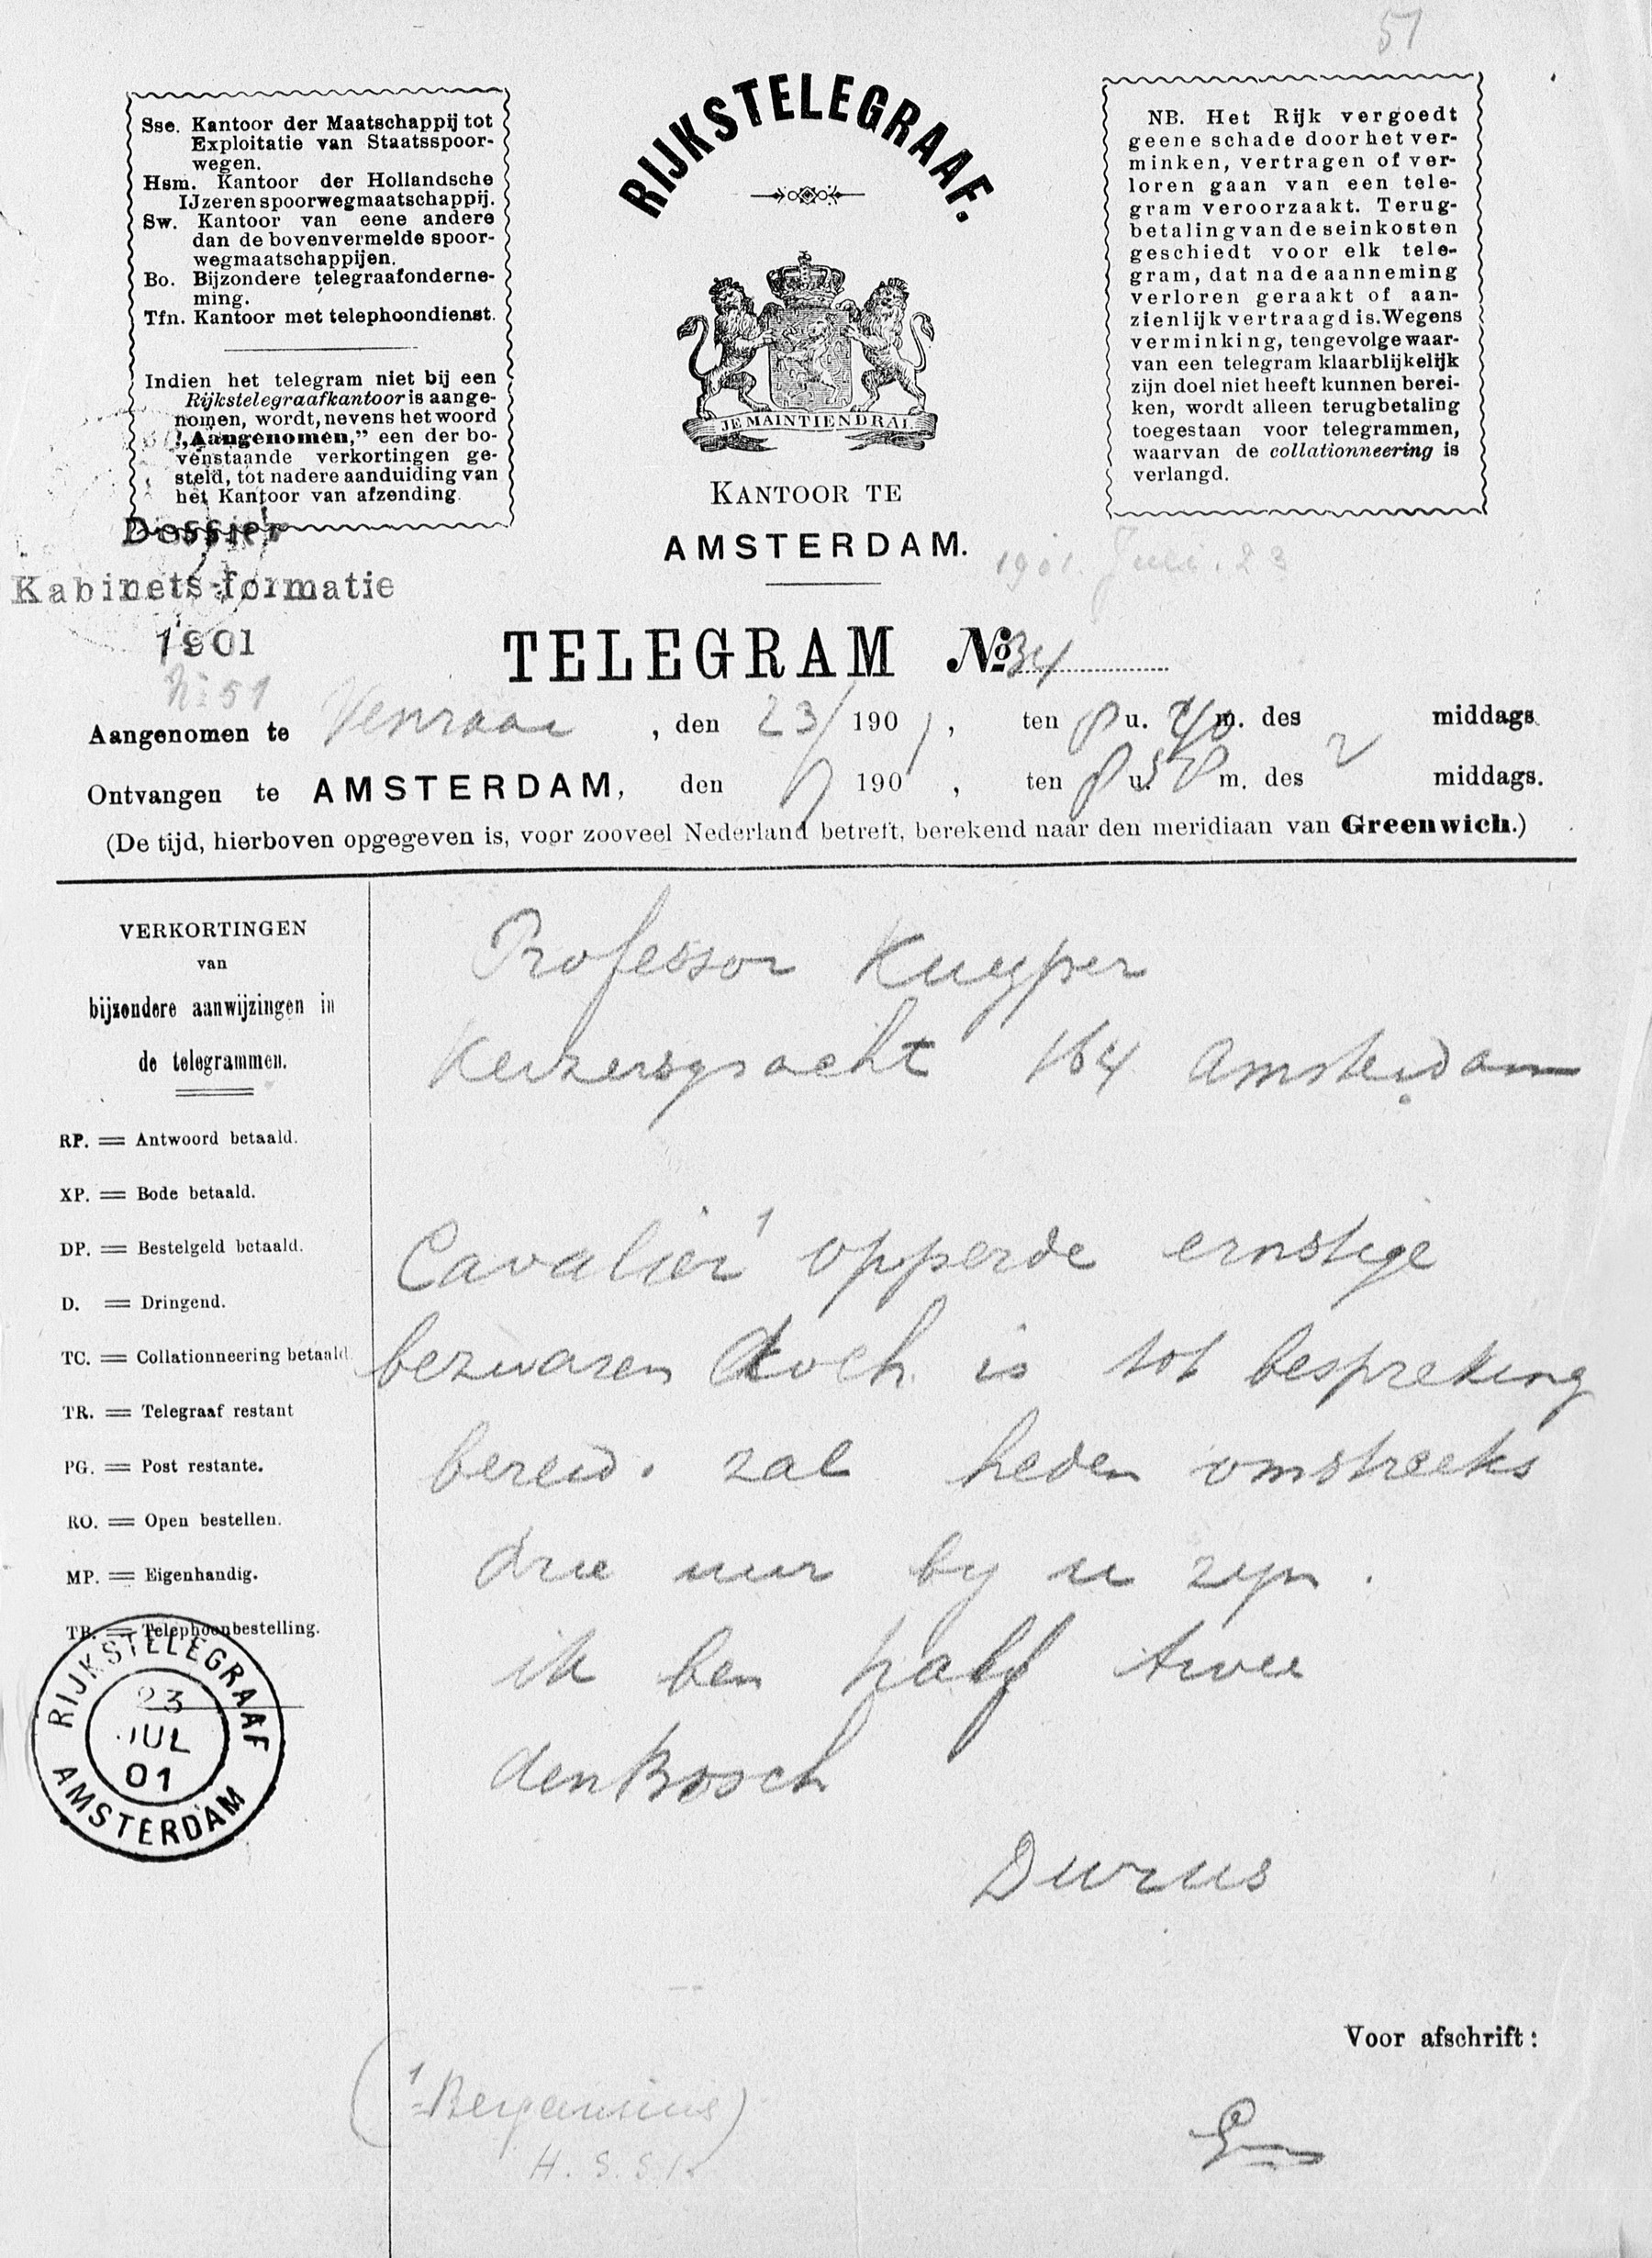 51
Sse. Kantoor der Maatschappij tot
Exploitatie van Staatsspoor-
wegen.
Hsm. Kantoor der Hollandsche
IJzerenspoorwegmaatschappij.
Sw. Kantoor van eene andere
dan de bovenvermelde spoor-
wegmaatschappijen.
Bo. Bijzondere telegraafonderne-
ming.
Tfn. Kantoor met telephoondienst.
Indien het telegram niet bij een
Rijkstelegraafkantoor is aange-
nomen, wordt, nevens het woord
„Aangenomen,” een der bo-
venstaande verkortingen ge-
steld, tot nadere aanduiding van
het Kantoor van afzending.
RIJKSTELEGRAAF.
JE MAINTIENDRAI
KANTOOR TE
AMSTERDAM.
NB. Het Rijk vergoedt
geene schade door het ver-
minken, vertragen of ver-
loren gaan van een tele-
gram veroorzaakt. Terug-
betaling van de seinkosten
geschiedt voor elk tele-
gram, dat na de aanneming
verloren geraakt of aan-
zienlijk vertraagd is. Wegens
verminking, tengevolge waar-
van een telegram klaarblijkelijk
zijn doel niet heeft kunnen berei-
ken, wordt alleen terugbetaling
toegestaan voor telegrammen,
waarvan de collationneering is
verlangd.
1901. Juli. 23
Dossier
Kabinets-formatie
1901
No 51
TELEGRAM No 34
Aangenomen te Venraai, den 23/ 1901, ten 8 u. 40 m. des middags.
Ontvangen te AMSTERDAM, den 190 , ten 8 u. 58 m. des v middags.
(De tijd, hierboven opgegeven is, voor zooveel Nederland betreft, berekend naar den meridiaan van Greenwich.)
VERKORTINGEN
van
bijzondere aanwijzingen in
de telegrammen.
RP. = Antwoord betaald.
XP. = Bode betaald.
DP. = Bestelgeld betaald.
D. = Dringend.
TC. = Collationneering betaald.
TR. = Telegraaf restant
PG. = Post restante.
RO. = Open bestellen.
MP. = Eigenhandig.
TB. = Telephoonbestelling.
RIJKSTELEGRAAF
23
JUL
01
AMSTERDAM
Professor Kuyper
Keizersgracht 164 Amsterdam
Cavalier¹ opperde ernstige
bezwaren doch is tot bespreking
bereid. zal heden omstreeks
drie uur by u zyn.
ik ben half twee
den Bosch
Durus
Voor afschrift:
(¹ = Bergansius)
H. S. S. K.